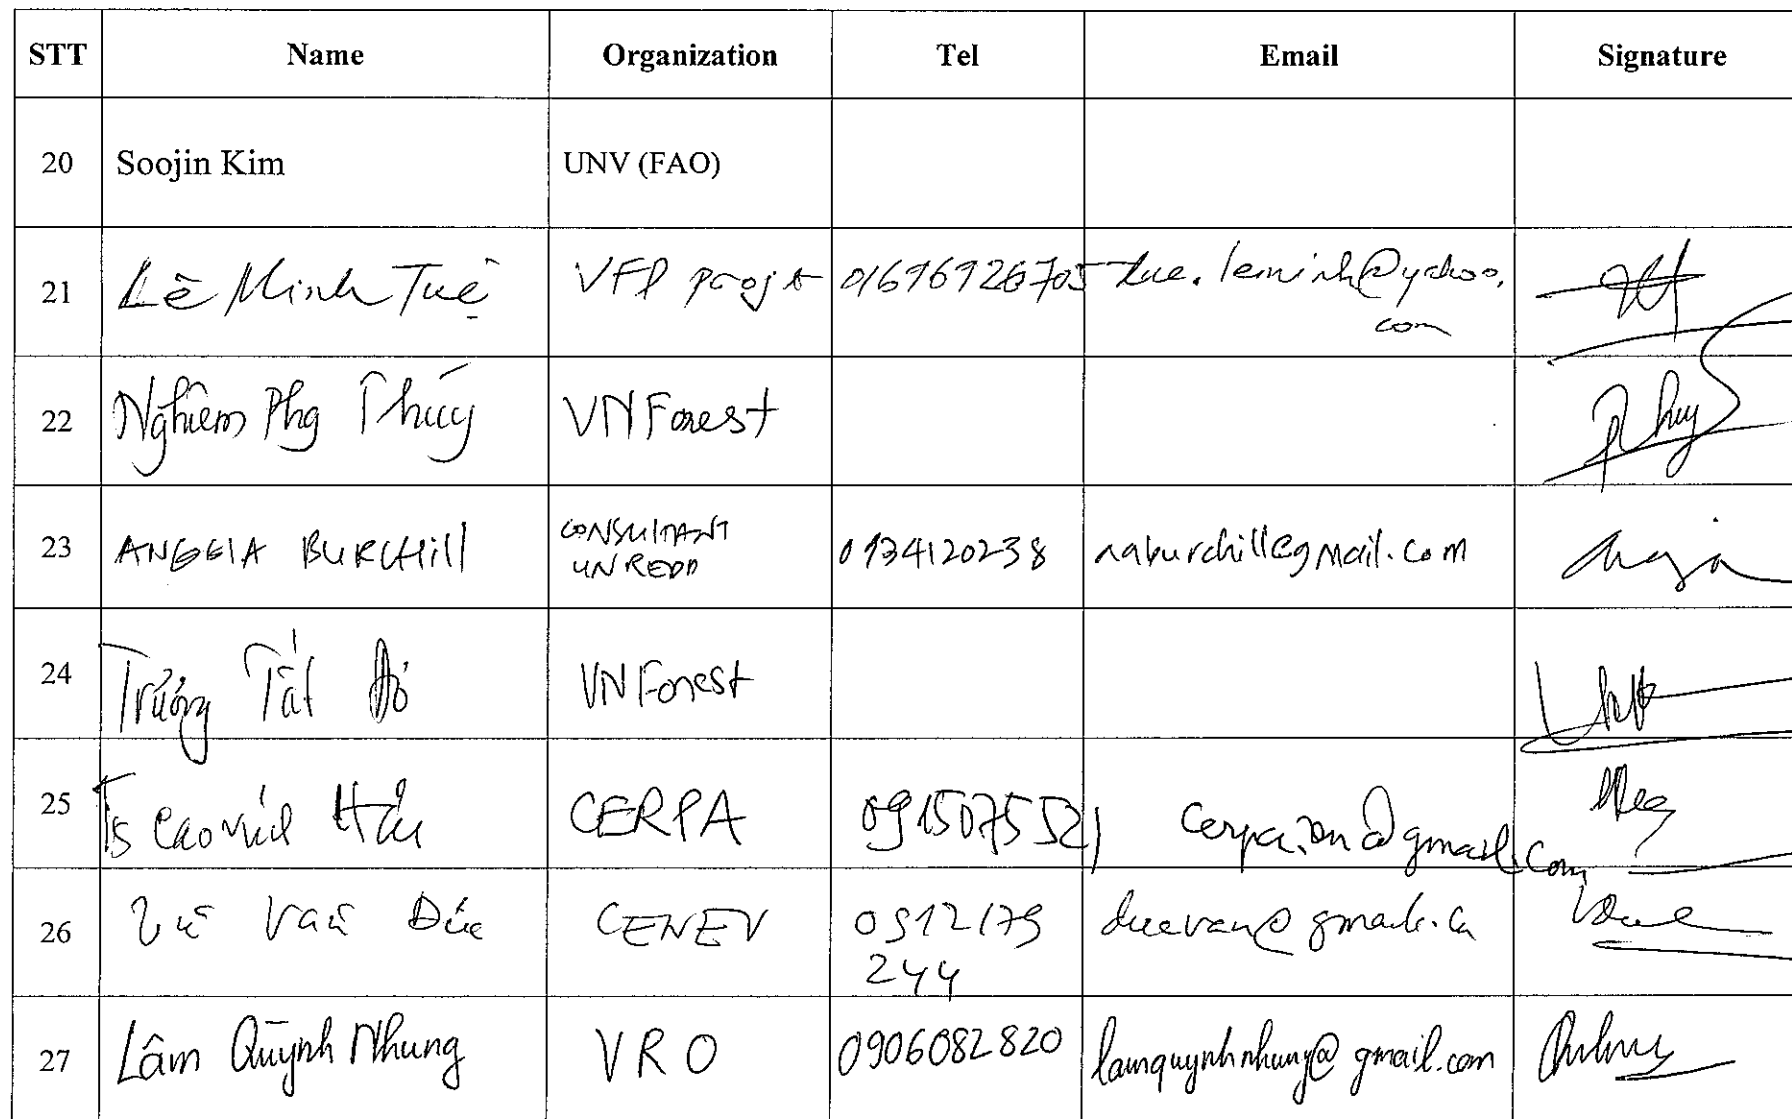 STT Name Organization Tel Email Signature
20 Soojin Kim UNV (FAO)
21 Lê Minh Tuệ VFD 01696926705 tue.leminh@yahoo.
com
22 Nghiêm Phg Thúy VNForest
23 ANGELA BURCHill CONSUlTANT
UN REDD
0934120238 naburchill@gmail.com
24 Tất VNForest
25 Ts CERPA 0915075521 @gmail.com
26 Vũ Văn Đức CENEV 0912179
244
27 Lâm Quỳnh Nhung VRO 0906082820 lamquynhnhung@gmail.com